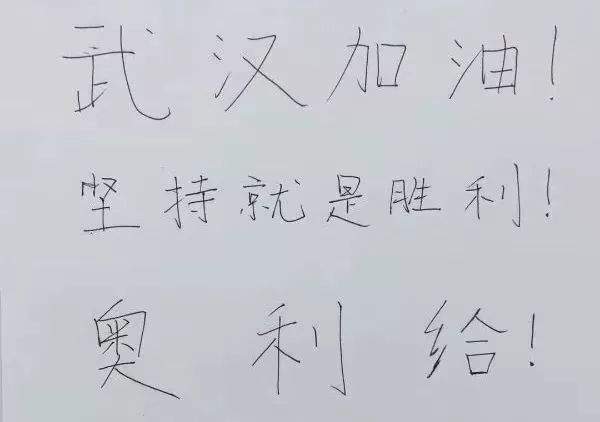 武汉加油!
坚持就是胜利!
奥利给!